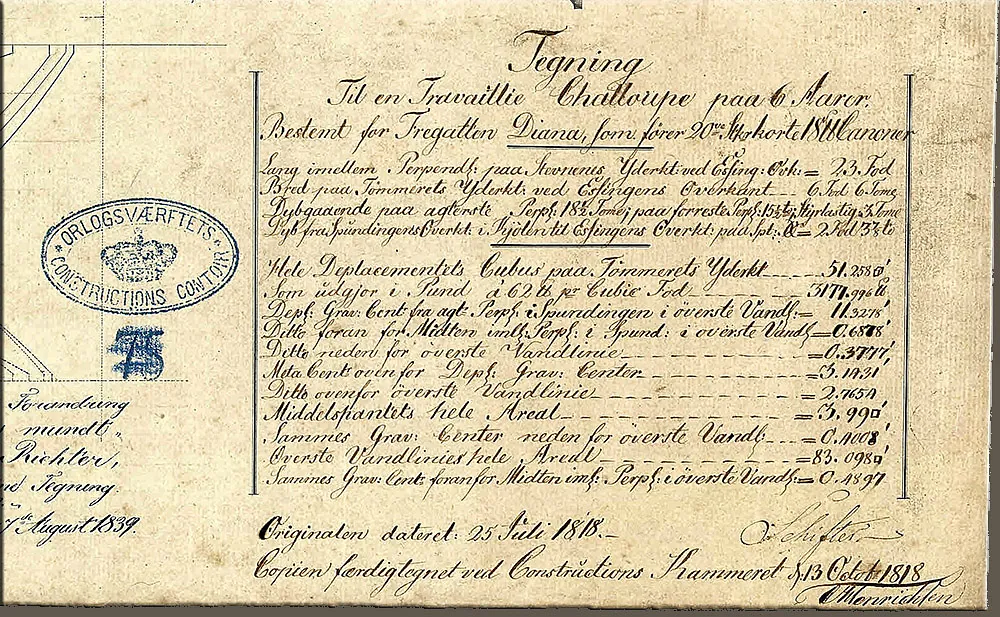 Tegning
Til en Travaillie Challoupe paa 6 Aarer.
Bestemt for Fregatten Diana, som fører 20
Lang imellem Perpend: paa Stevnens Yderkt: ved Esſing: Ovk: = 23 Fod
Bred paa Tömmerets Yderkt: ved Esſingens Overkant 6 Fod 6 Tome
Dybgaaende paa agterste Perp: 18½ Tome; paa forreste Perp: Styrlastig 3 Tome
Dyb fra Spundingens Overkt: i Kjölen til Esſingens Overkt: paa Spt: = 2 Fod
Hele Deplacementets Cubus paa Tömmerets Yderkt 51.258
Som udgjor i Pund á 62 ℔ pr Cubic Fod 3177.996 ℔
Depl: Grav: Cent: fra agt: Perp: i Spundingen i överste Vandl: = 11.3278'
Ditto foran for Midten iml: Perp: i Spund: i överste Vandl = 0.6878'
Ditto neden for överste Vandlinie = 0.3777'
Meta Cent: oven for Depl: Grav: Center = 3.1431
Ditto ovenfor överste Vandlinie = 2.7654
Middelspantets hele Areal = 3.99□'
Sammes Grav: Center neden for överste Vandl: = 0.4008'
Överste Vandlinies hele Areal = 83.098□'
Sammes Grav: Cent: foran for Midten iml: Perp: i överste Vandl: = 0.4897
Originalen dateret: 25 Juli 1818.
Schifter
Copien færdigtegnet ved Constructions Kammeret d. 13 Octob 1818
ORLOGSVÆRFTETS
CONSTRUCTIONS CONTOIR
75
Forandring
mundt
Richter,
Tegning.
7de August 1839.